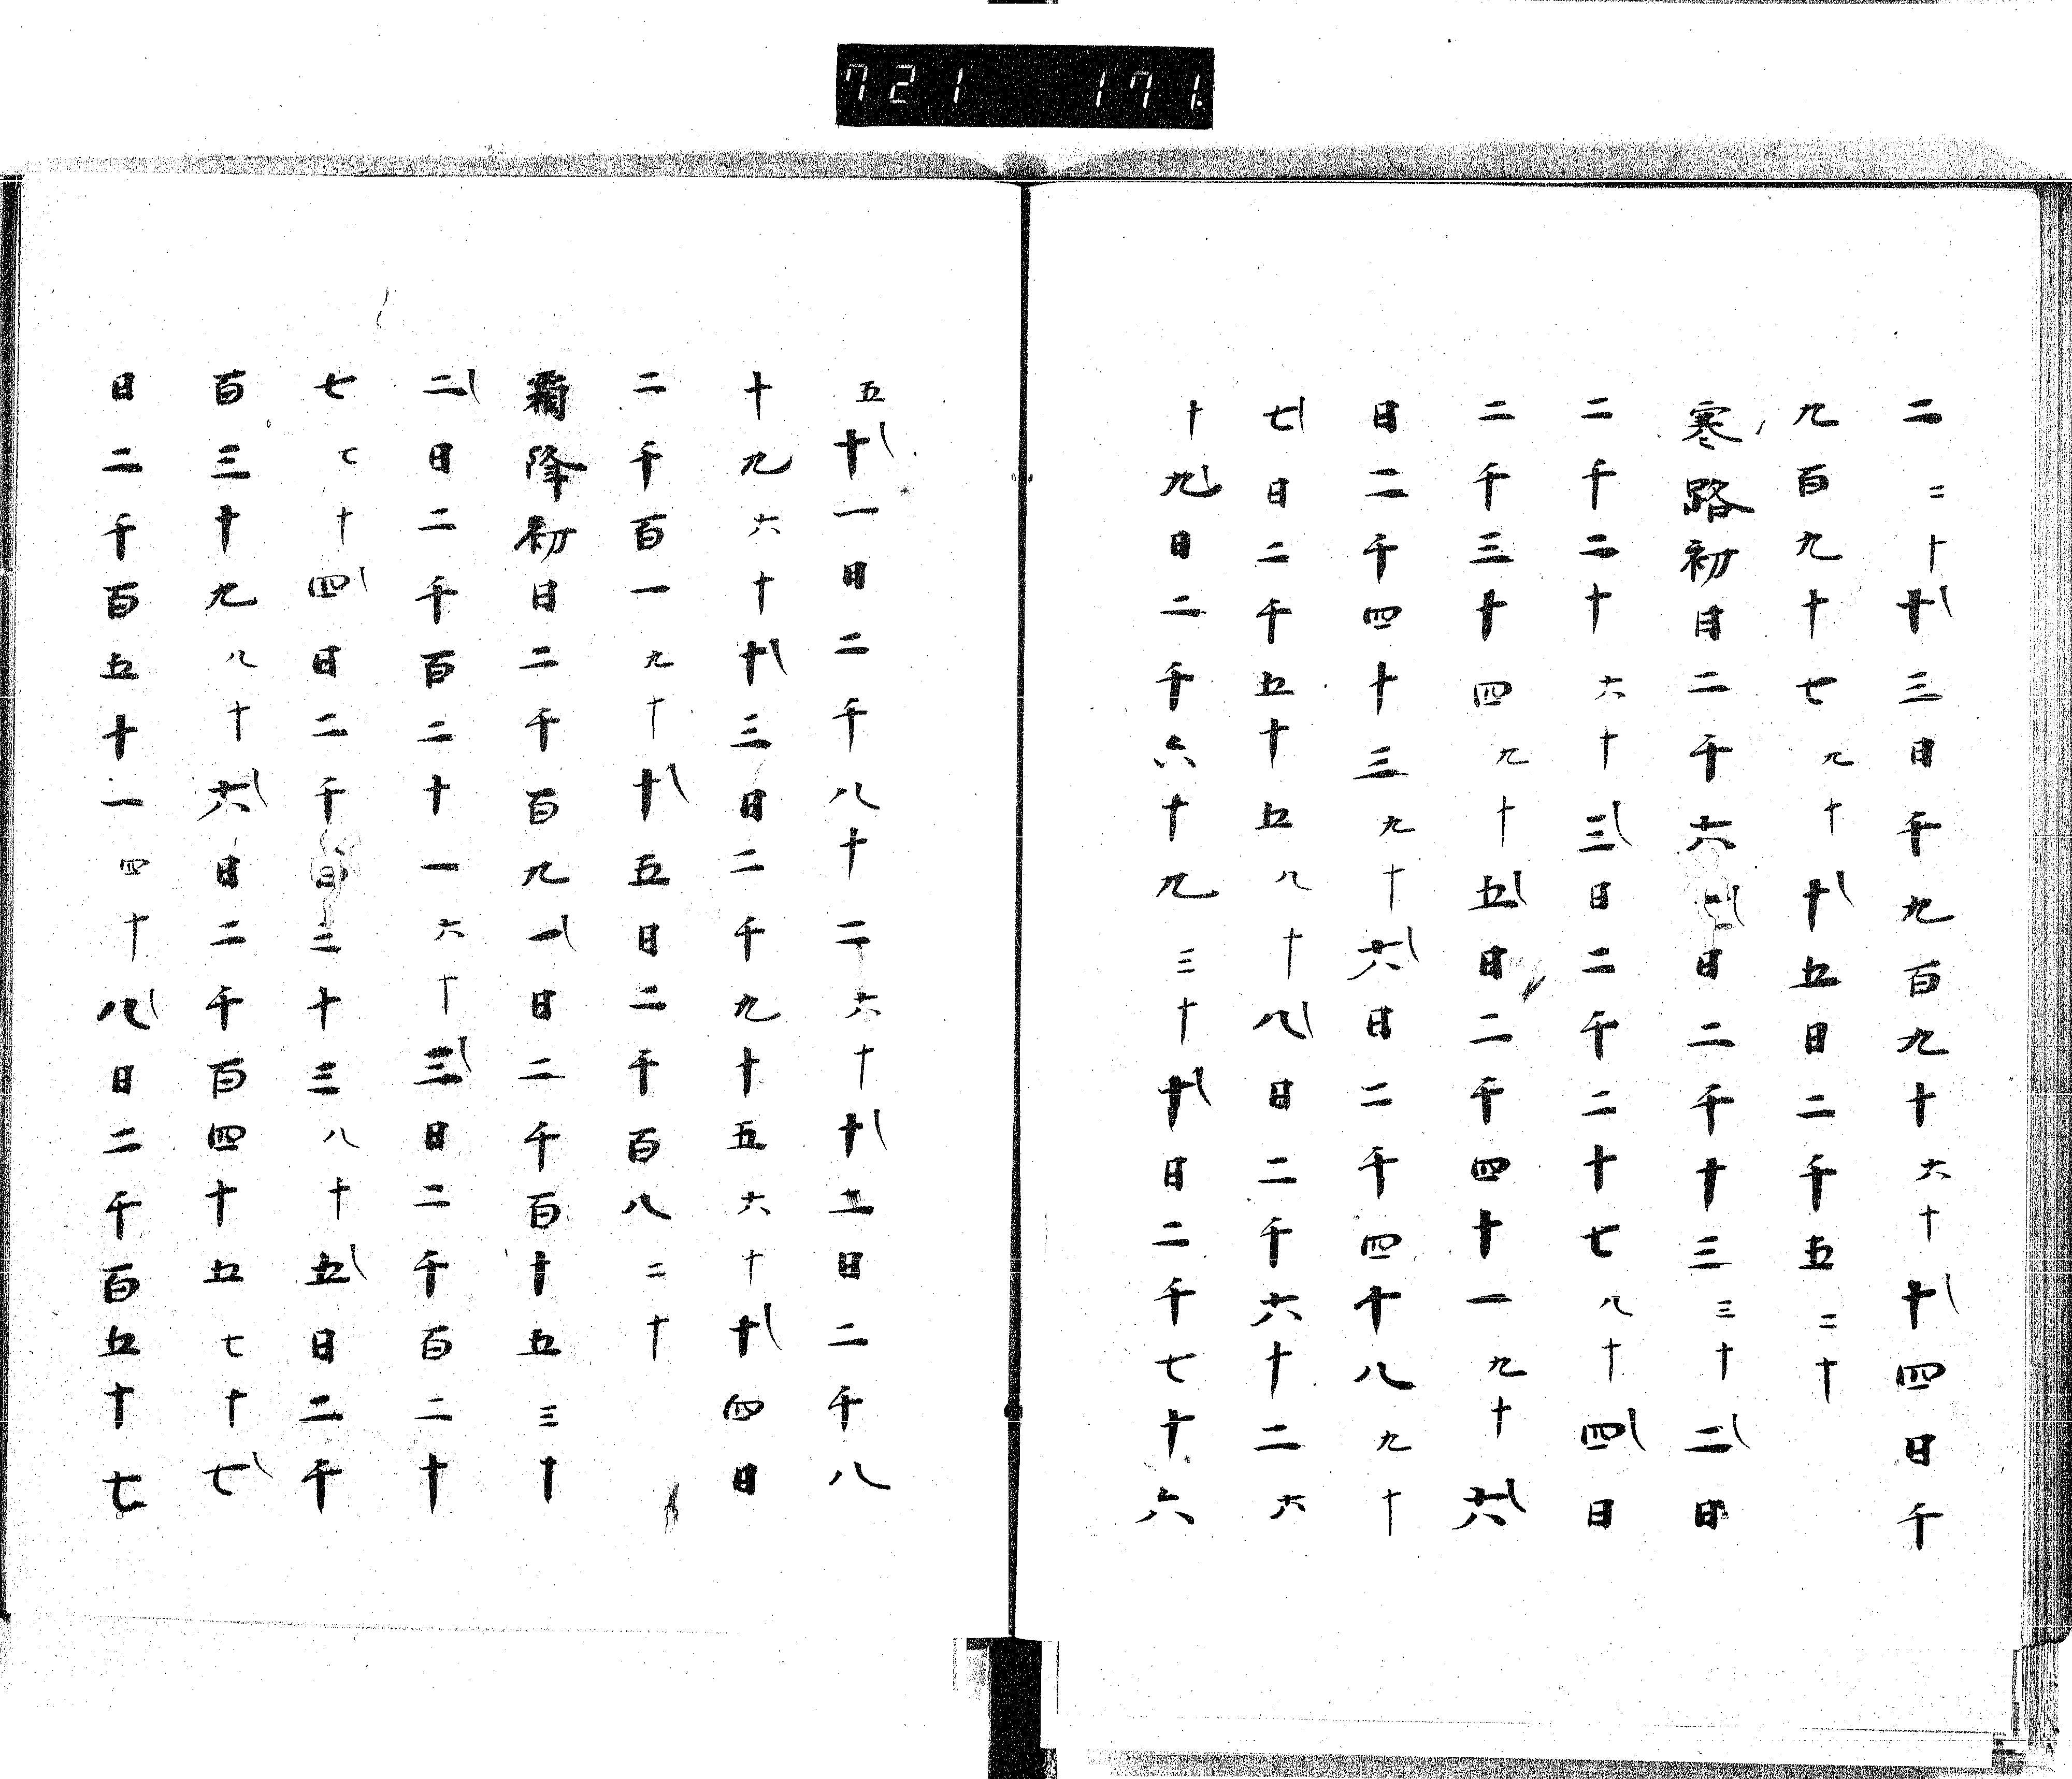 721 171
二二十十三日千九百九十六十十四日千
九百九十七九十十五日二千五二十
寒路初日二千六一日二千十三三十二日
二千二十六十三日二千二十七八十四日
二千三十四九十五日二千四十一九十六
日二千四十三九十六日二千四十八九十
七日二千五十五八十八日二千六十二六
十九日二千六十九三十十日二千七十六
五十一日二千八十二六十十二日二千八
十九六十十三日二千九十五六十十四日
二千百一九十十五日二千百八二十
霜降初日二千百九一日二千百十五三十
二日二千百二十一六十三日二千百二十
七七十四日二千百三十三八十五日二千
百三十九八十六日二千百四十五七十七
日二千百五十一四十八日二千百五十七